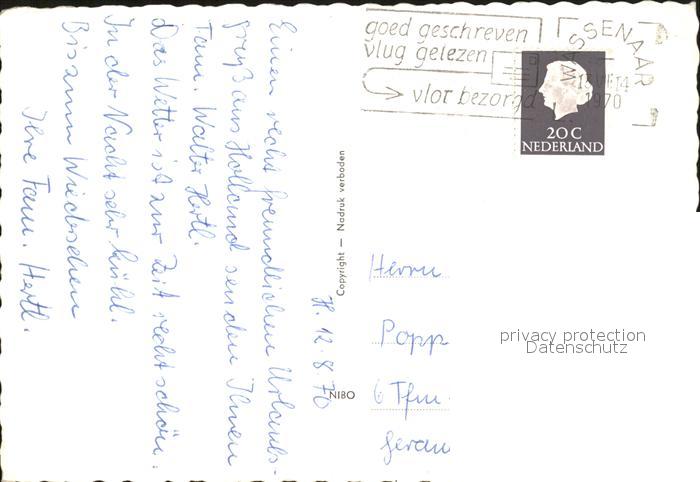 H. 12.8.70
Einen recht freundlichen Urlaubs-
gruß aus Holland senden Ihnen
Fam. Walter Hertl.
Das Wetter ist zur Zeit recht schön.
In der Nacht sehr kühl.
Bis zum Wiedersehen
Ihre Fam. Hertl.
Copyright — Nadruk verboden
NIBO
goed geschreven
vlug gelezen
vlot bezorgd
WASSENAAR
1970
20 C
NEDERLAND
Herrn
Popp
6 Ffm.
privacy protection
Datenschutz